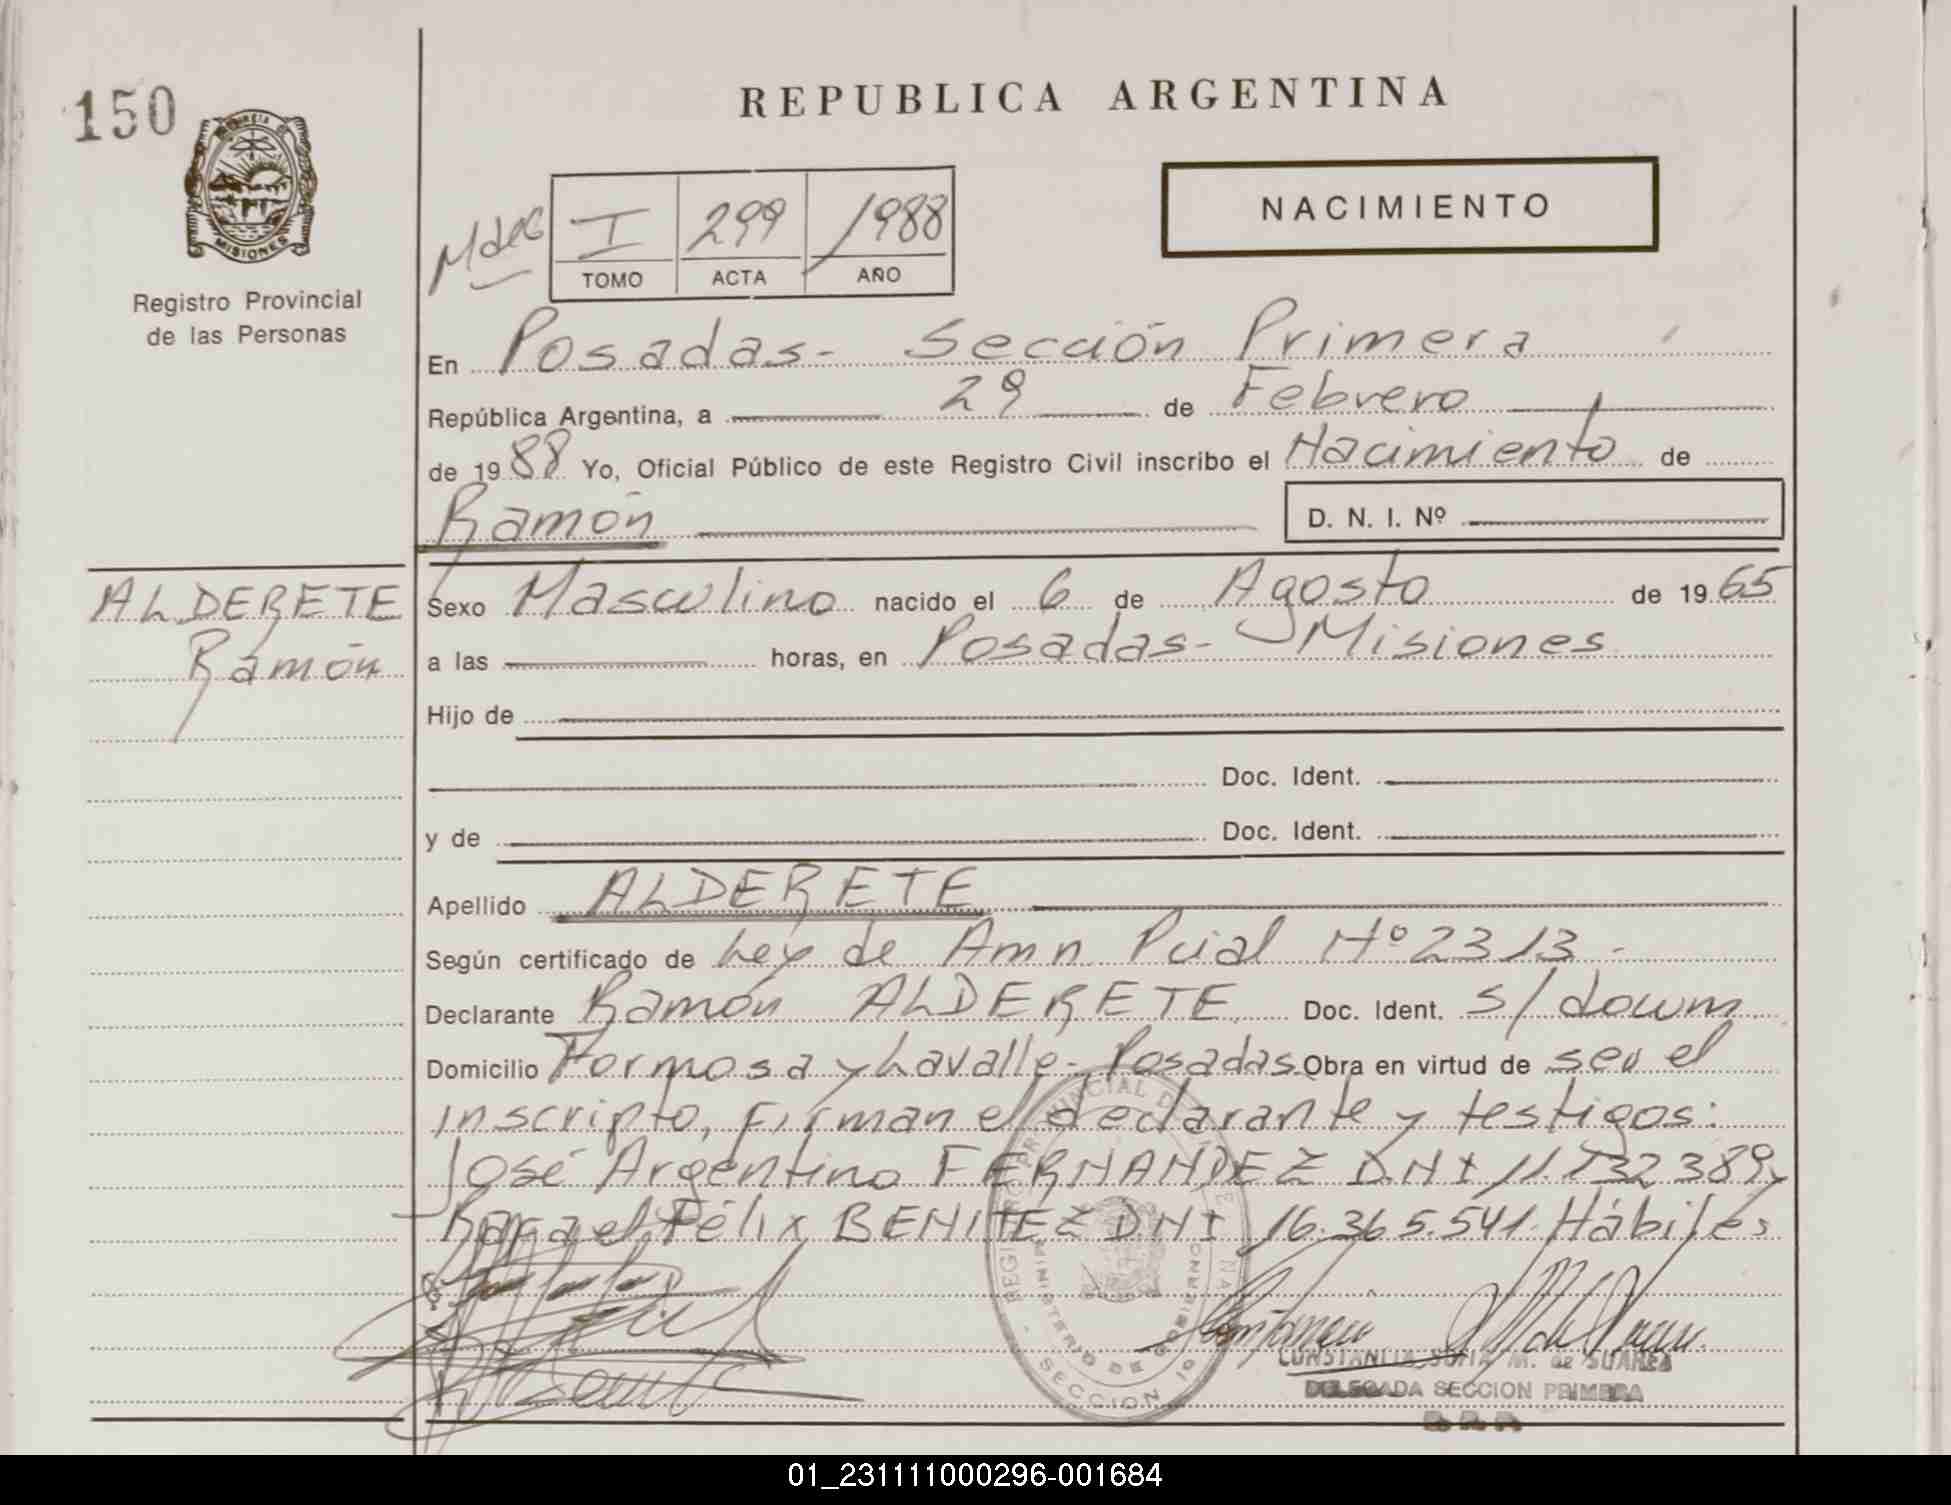 150
PROVINCIA DE
MISIONES
Registro Provincial
de las Personas
REPUBLICA ARGENTINA
NACIMIENTO
I 299 1988
TOMO ACTA AÑO
En Posadas- Sección Primera
República Argentina, a 29 de Febrero
de 1988 Yo, Oficial Público de este Registro Civil inscribo el Nacimiento de
Ramón D. N. I. Nº
ALDERETE
Ramón
Sexo Masculino nacido el 6 de Agosto de 1965
a las horas, en Posadas- Misiones
Hijo de
Doc. Ident.
y de Doc. Ident.
Apellido ALDERETE
Según certificado de Ley de Amn Pcial Nº 2313-
Declarante Ramón ALDERETE Doc. Ident. s/docum
Domicilio Formosa y Lavalle- Posadas Obra en virtud de ser el
inscripto, firman el declarante y testigos:
José Argentino FERNANDEZ D.N.I 11.732389 y
Rafael Félix BENITEZ D.N.I 16.365.541. Hábiles
REGISTRO PROVINCIAL DE LAS
MINISTERIO DE GOBIERNO
SECCION 1º
CONSTANCIA SOFIA M. de SUAREZ
DELEGADA SECCION PRIMERA
R. P. P.
01_231111000296-001684